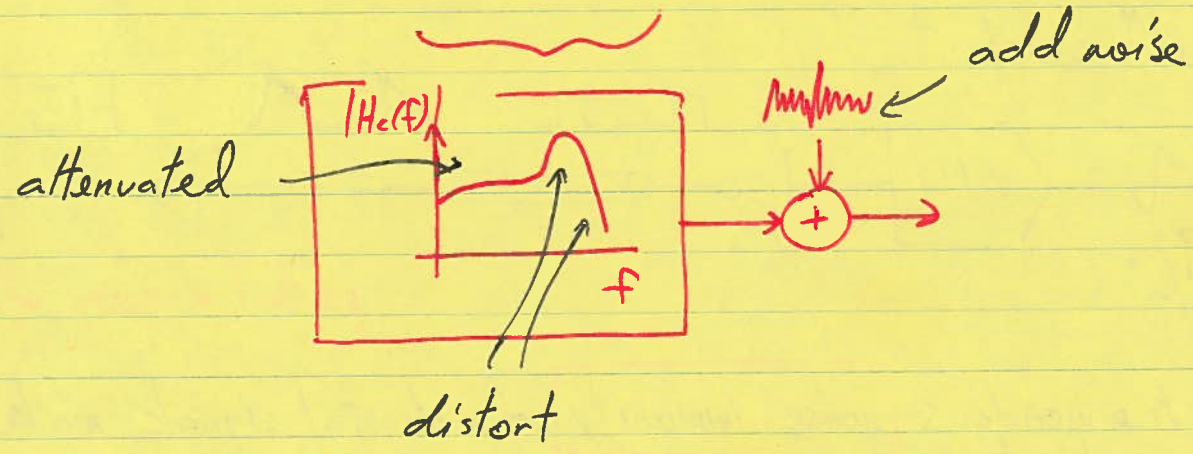 add noise
|Hc(f)|
attenuated
+
f
distort